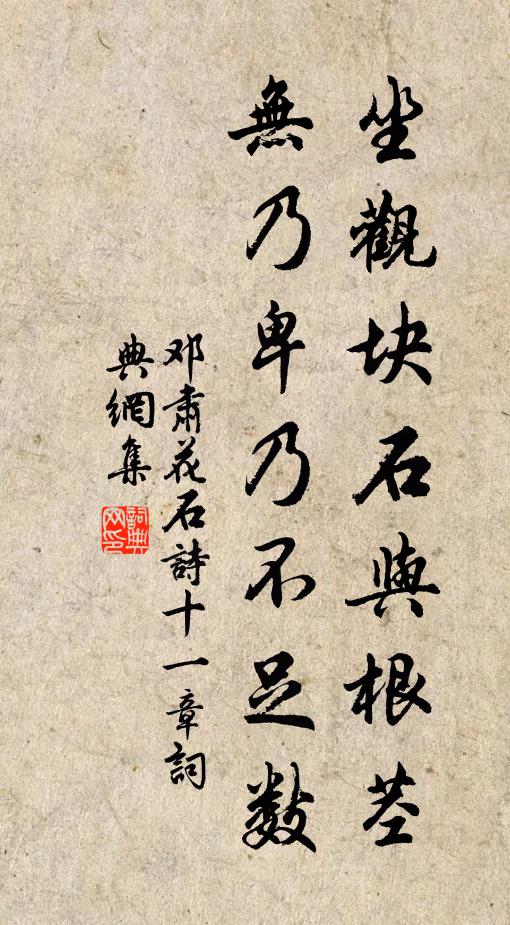 坐觀块石與根茎
無乃卑乃不足數
邓肅花石詩十一章詞
典網集
詞典網印